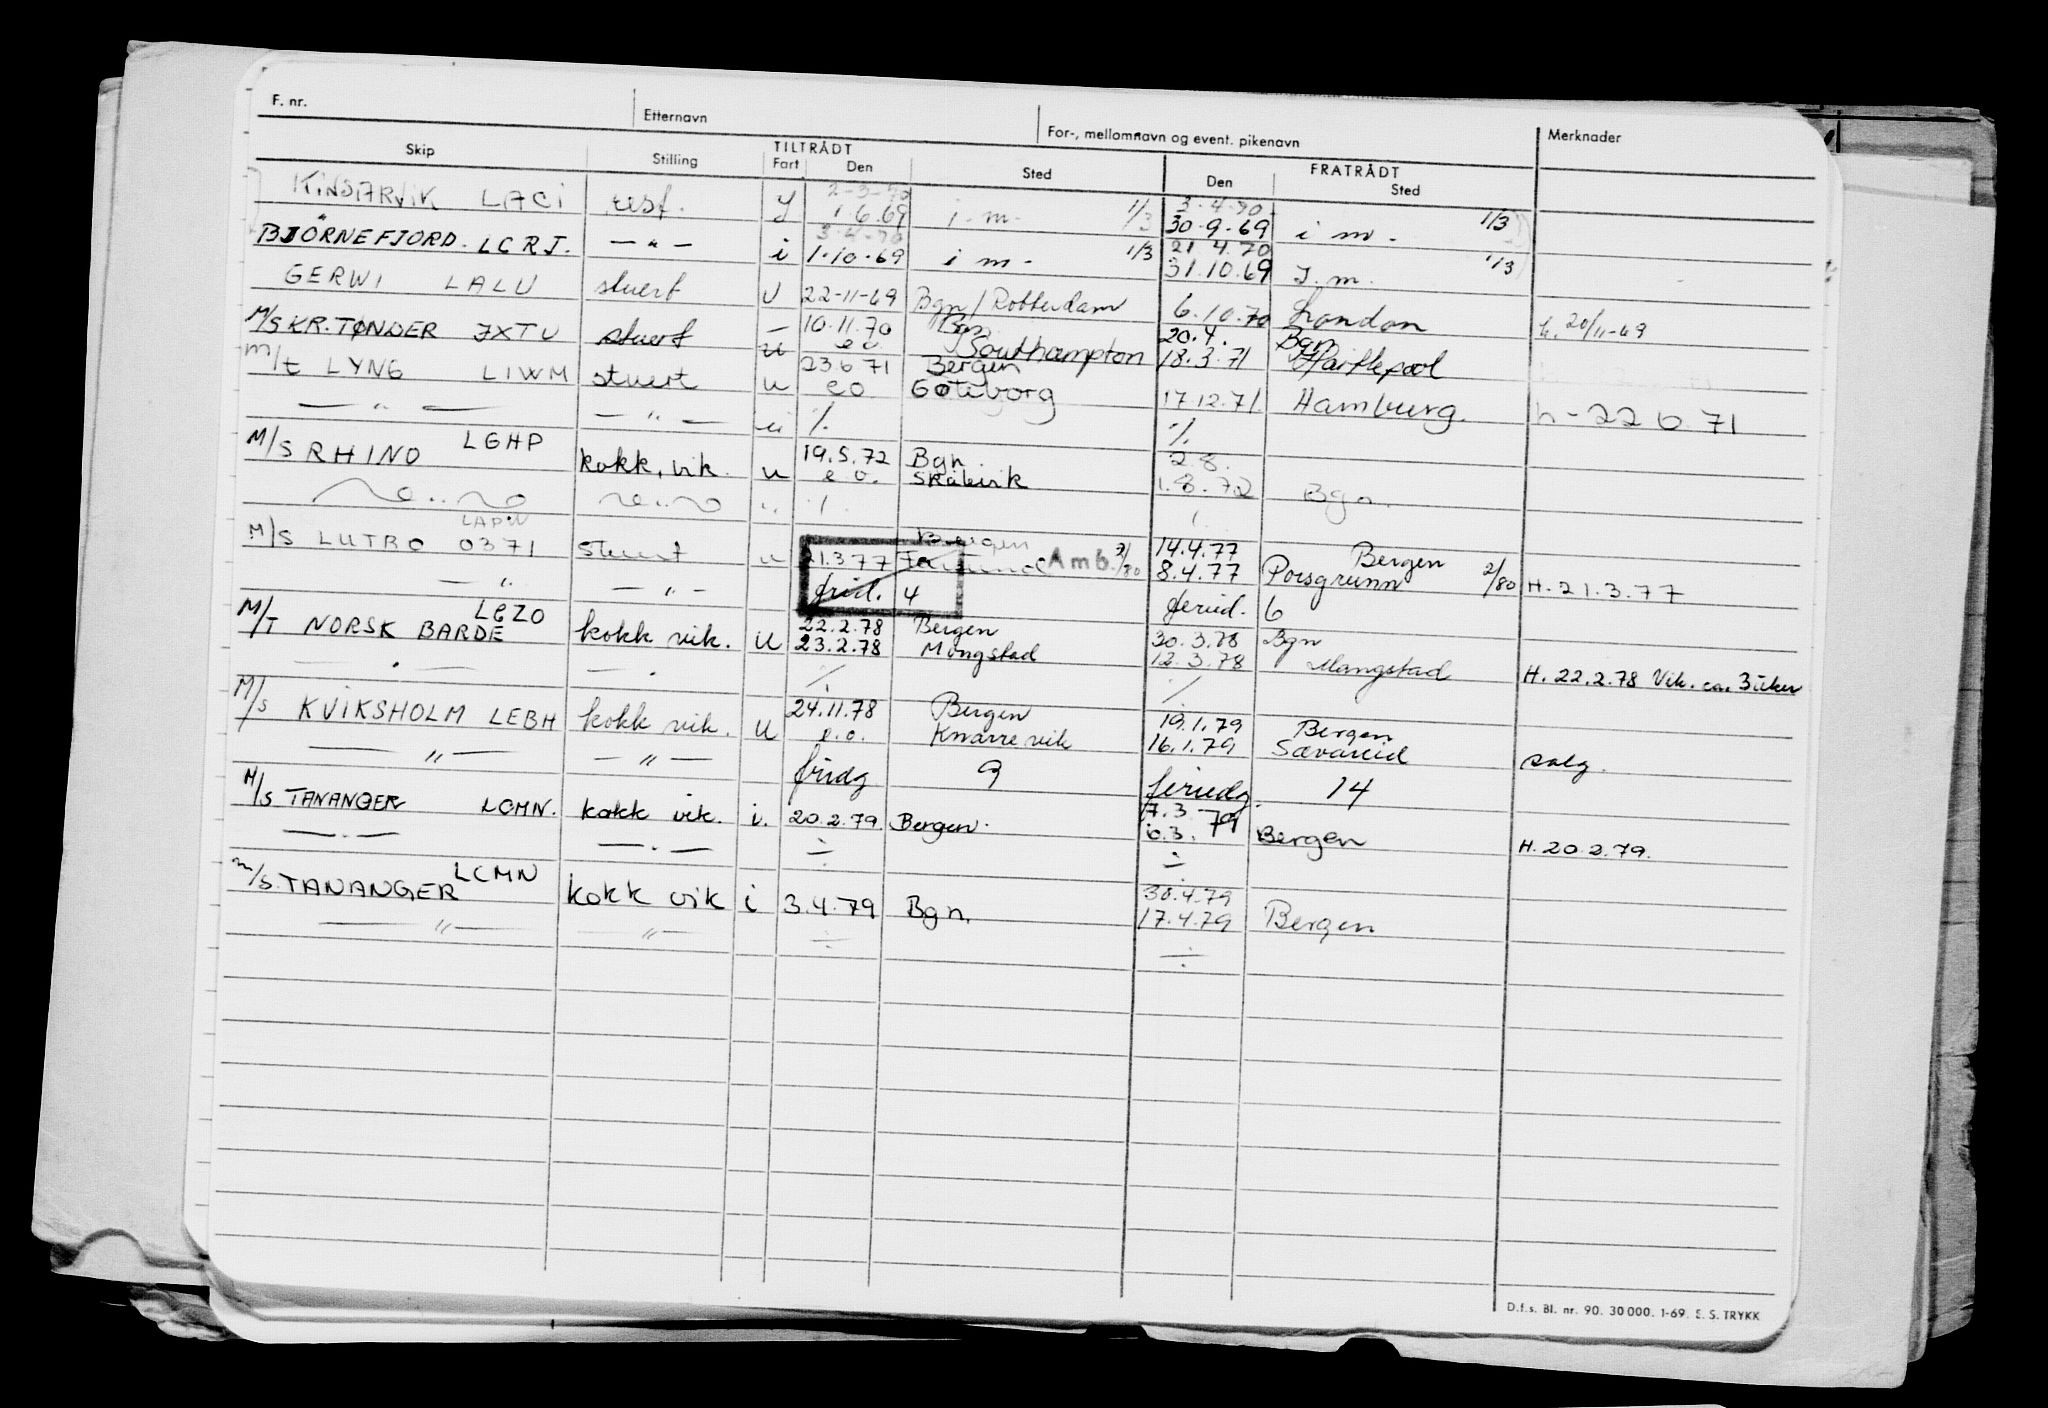 F. nr. Etternavn For-, mellomnavn og event. pikenavn Merknader
Skip Stilling TILTRÅDT Fart Den Sted FRATRÅDT Den Sted
2-3-70 3.4.70
KINSARVIK LACI rest. 1.6.69 i.m. 1/3 30.9.69 i m. 1/3
3.4.70 21.4.70
BJÖRNEFJORD. LCRJ. — " — i 1.10.69 i m. 1/3 31.10.69 I.m. 1/3
GERWI LALU stuert U 22-11-69 Bgn / Rotterdam 6.10.70 London h. 20/11-69
10.11.70 Bgn 20.4. Bgn
M/S KR. TØNDER JXTU stuert u e.o. Southampton 18.3.71 Hartlepool
23.6 71 Bergen
M/t LYNG LIWM stuert u e.o. Göteborg 17.12.71 Hamburg. h - 22 6 71
— " — — " — u ./. ./.
19.5.72 Bgn 2.8.
M/S RHINO LGHP kokk, vik. u e.o. Skålevik 1.8.72 Bgn.
Bergen 14.4.77 Bergen
M/S LUTRO LAPW 0371 Stuert u 21.3 77 Amb. 2/80 8.4.77 Porsgrunn 2/80 H. 21.3.77
— " — — " — frid. 4 feried. 6
22.2.78 Bergen 30.3.78 Bgn
M/T NORSK BARDE LEZO kokk vik. U 23.2.78 Mongstad 12.3.78 Mongstad H. 22.2.78 Vik. ca. 3 uker
— . — — . ./. ./.
24.11.78 Bergen 19.1.79 Bergen
M/s KVIKSHOLM LEBH kokk vik. U e.o. Knarrevik 16.1.79 Sævareid salg.
— " — — " — fridg 9 feriedg. 14
7.3.79
M/S TANANGER LCMN. kokk vik. i. 20.2.79. Bergen. 6.3. Bergen H. 20.2.79.
— . — — . — ÷ ÷
30.4.79
m/s. TANANGER LCMN kokk vik i 3.4.79 Bgn. 17.4.79 Bergen
— " — — " — ÷ ÷
D.f.s. Bl. nr. 90. 30 000. 1-69. E. S. TRYKK